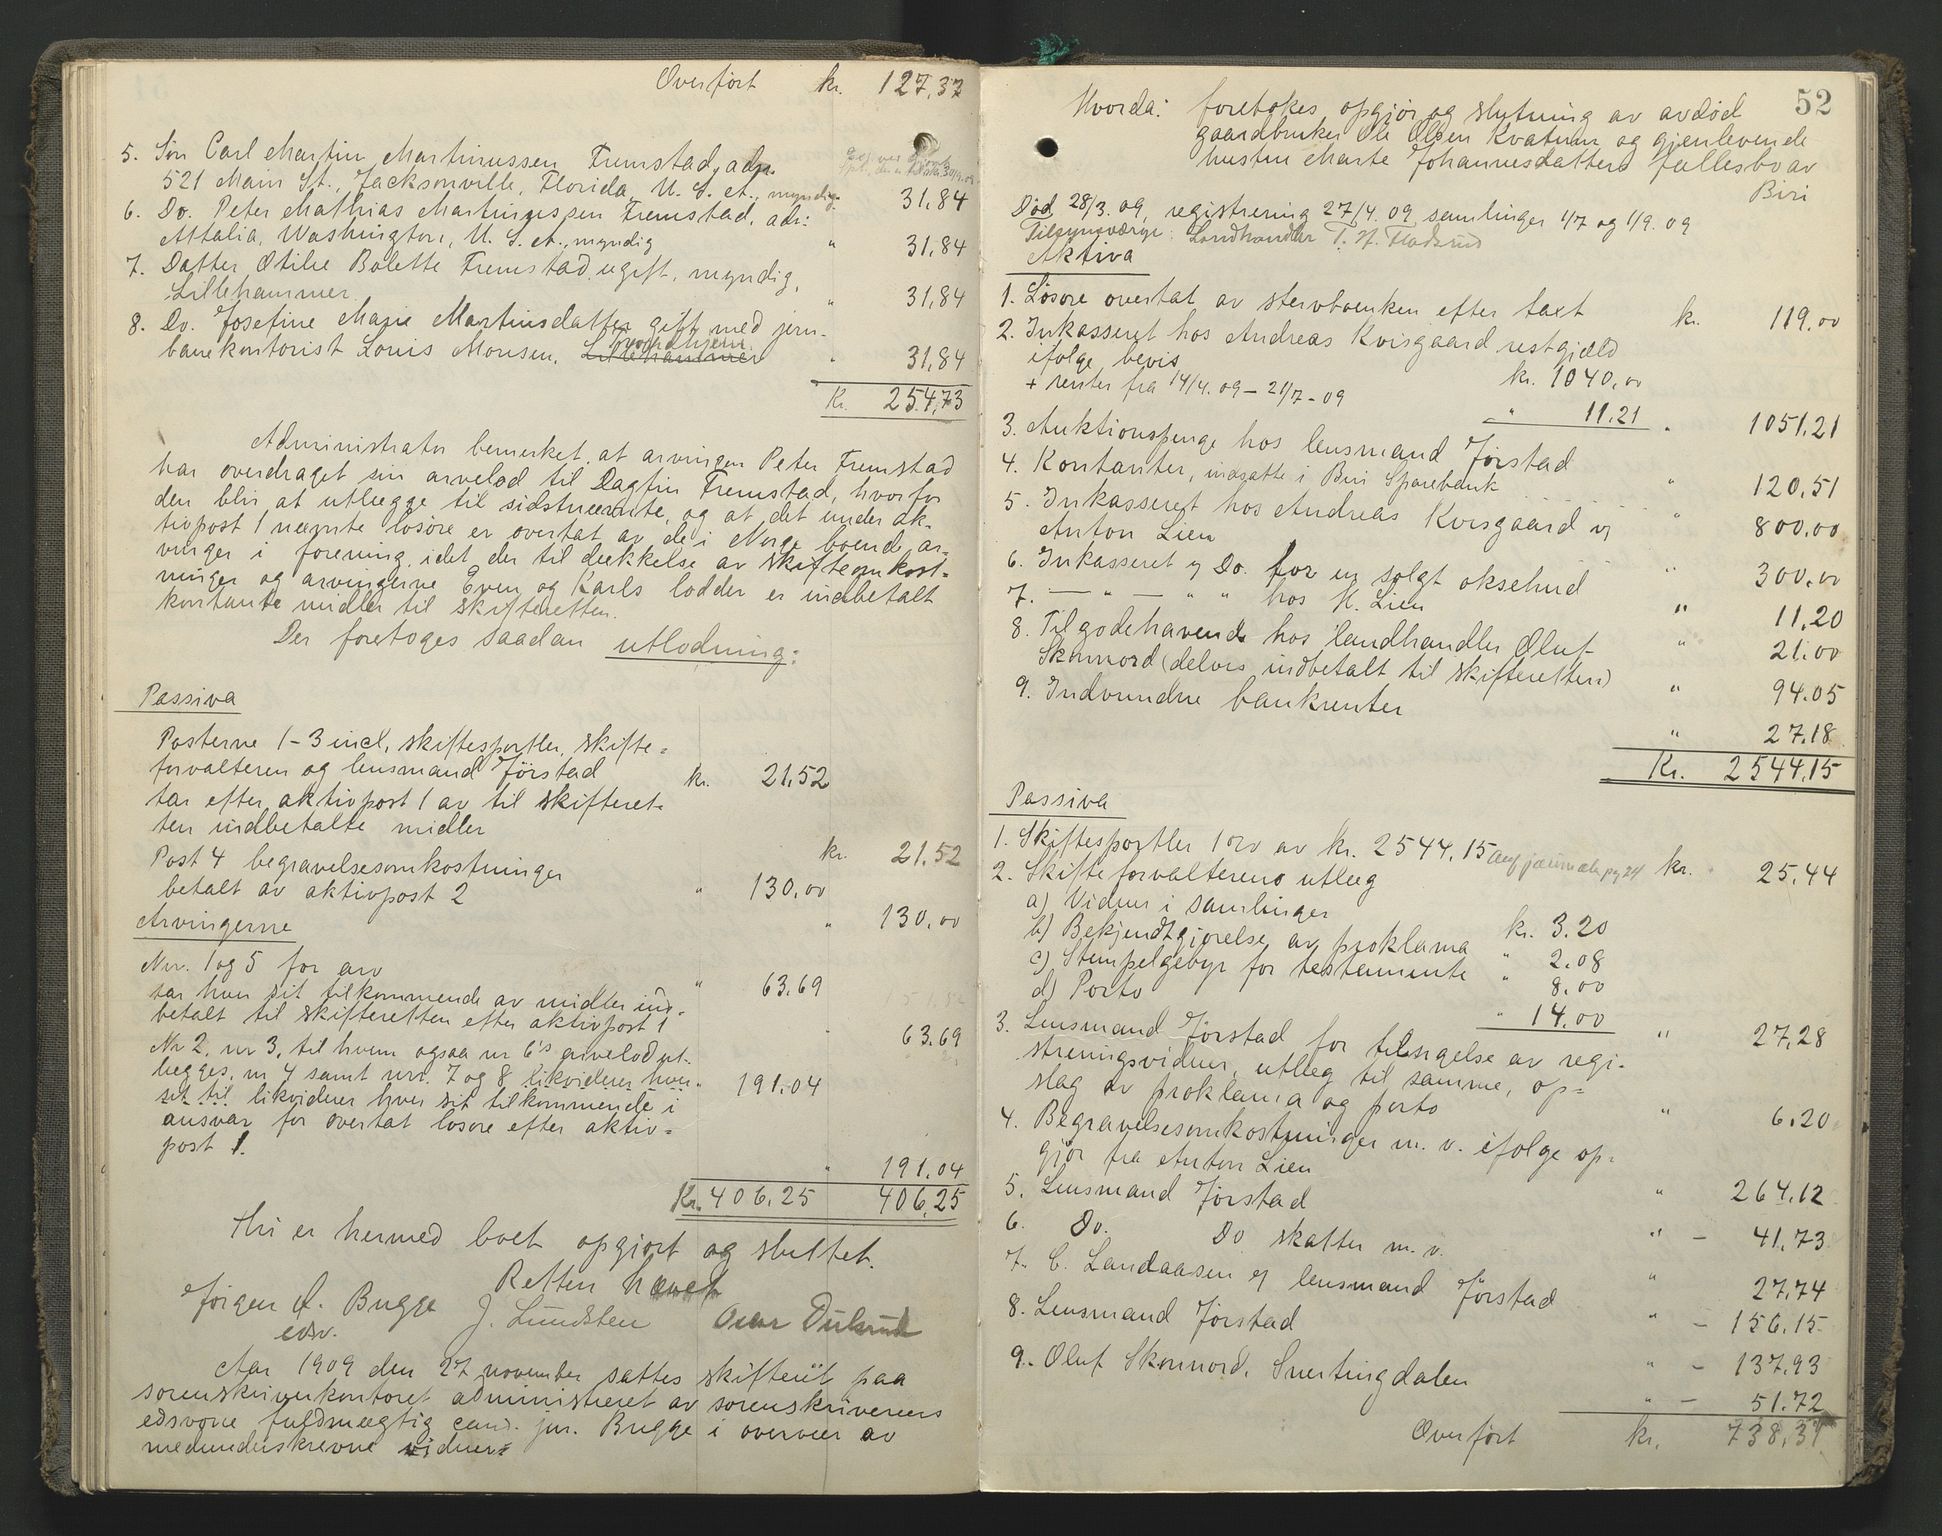 Overført kr. 127,37
5. Søn Carl Martin Martinussen Fremstad, adr.
521 Main St., Jacksonville, Florida, U. S. A., myndig 31,84
6. Do. Peter Mathias Martinussen Fremstad, adr.
Attalia, Washington, U. S. A., myndig " 31,84
7. Datter Otilie Bolette Fremstad, ugift, myndig,
Lillehammer " 31,84
8. Do. Josefine Marie Martinsdatter gift med jern-
banekontorist Louis Monsen, Lillehammer Trondhjem " 31,84
Kr. 254,73
Administrator bemerket, at arvingen Peter Fremstad
har overdraget sin arvelod til Dagfin Fremstad, hvorfor
den blir at utlægge til sidstnævnte, og at det under ak-
tivpost 1 nævnte løsøre er overtat av de i Norge boende ar-
vinger i forening, idet der til dækkelse av skifteomkost-
ninger og arvingerne Even og Karls lodder er indbetalt
kontante midler til skifteretten.
Der foretoges saadan utlodning:
Passiva
Posterne 1-3 incl. skiftesportler, skifte-
forvalteren og lensmand Jørstad kr. 21,52
tar efter aktivpost 1 av til skifteret-
ten indbetalte midler kr. 21,52
Post 4 begravelsesomkostninger " 130,00
betalt av aktivpost 2 " 130,00
Arvingerne
Nr. 1 og 5 for arv " 63,69
tar hver sit tilkommende av midler ind-
betalt til skifteretten efter aktivpost 1 " 63,69
Nr 2, nr 3, til hvem ogsaa nr 6's arvelod ut-
lægges, nr 4 samt nr. 7 og 8 likviderer hver " 191,04
sit til likviderer hver sit tilkommende i
ansvar for overtat løsøre efter aktiv-
post 1. " 191,04
Kr. 406,25 406,25
Thi er hermed boet opgjort og sluttet.
Retten hævet
Jørgen A. Bugge J. Lundsten
edsv.
Aar 1909 den 27 november sattes skifteret paa
sorenskriverkontoret administreret av sorenskriverens
edsvorne fuldmægtig cand. jur. Bugge i overvær av
medunderskrevne vidner:
52
Hvorda: foretokes opgjør og slutning av avdød
gaardbruker Ole Olsen Kvatum og gjenlevende
hustru Marte Johannesdatters fællesbo av
Biri
Død 28/3. 09, registrering 27/4. 09 samlinger 1/7 og 1/9. 09
Tilsynsværge: Landhandler T. H. Fladsrud
Aktiva
1. Løsøre overtat av stervboenken efter taxt kr. 119.00
2. Inkasseret hos Andreas Kvisgaard restgjæld
ifølge bevis kr. 1040,00
+ renter fra 14/4. 09 - 21/7 - 09 " 11.21 " 1051.21
3. Auktionspenge hos lensmand Jørstad " 120,51
4. Kontanter, indsatte i Biri Sparebank " 800,00
5. Inkasseret hos Andreas Kvisgaard v/
Anton Lien " 300,00
6. Inkasseret v/ Do. for en solgt oksehud " 11,20
7. — " — " " hos H. Lien " 21.00
8. Tilgodehavende hos landhandler Oluf
Skonnord (delvis indbetalt til skifteretten) " 94.05
9. Indvundne bankrenter " 27,18
Kr. 2544,15
Passiva
1. Skiftesportler 1 o/o av kr. 2544,15 kr. 25,44
2. Skifteforvalterens utlæg
a) Vidner i samlinger kr. 3.20
b) Bekjendtgjørelse av proklama " 2.08
c) Stempelgebyr for testamente " 8.00
d) Porto " 14.00 " 27,28
3. Lensmand Jørstad for tilsigelse av regi-
streringsvidner, utlæg til samme, op-
slag av proklama og porto " 6.20
4. Begravelsesomkostninger m. v. ifølge op-
gjør fra Anton Lien " 264,12
5. Lensmand Jørstad " - 41.73
6. Do. Do skatter m. v. " 27,74
7. C. Landaasen v/ lensmand Jørstad " - 156.15
8. Lensmand Jørstad " - 137,93
9. Oluf Skonnord, Snertingdalen " - 51.72
Overført kr. 738,31